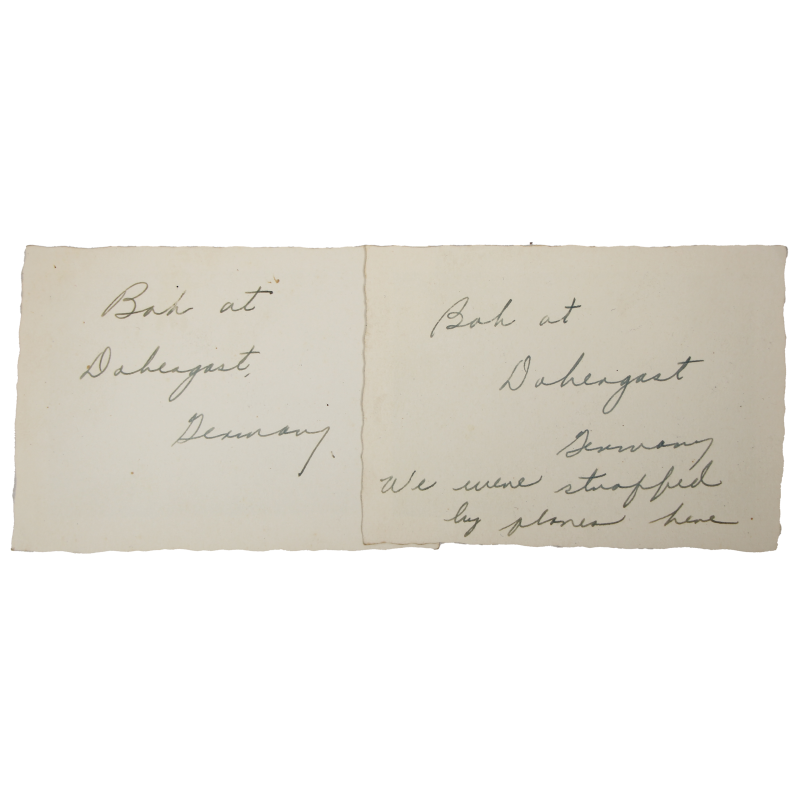 Bob at
Dobergast,
Germany.
Bob at
Dobergast
Germany
We were straffed
by planes here